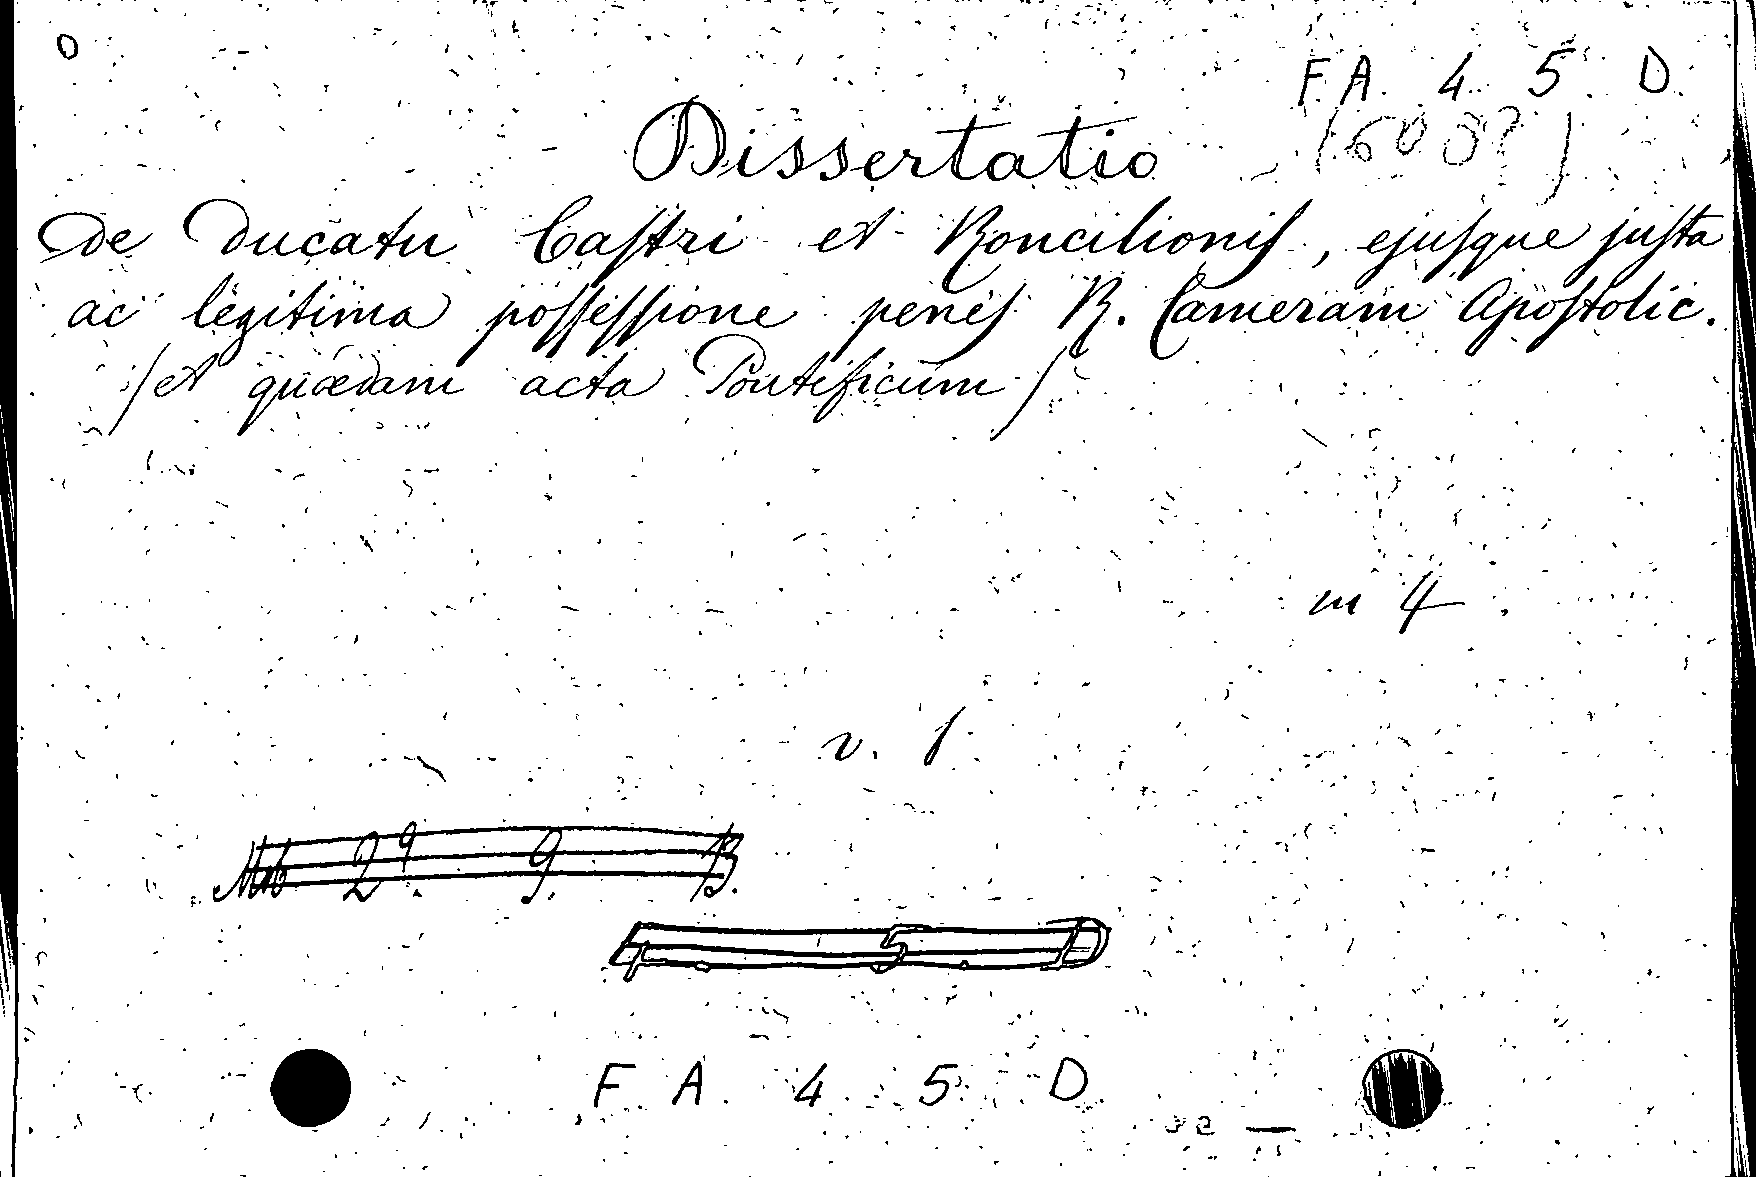 F A 4 5 D
Dissertatio
De Ducatu Caſtri et Roncilioniſ, ejuſque juſta
ac legitima poſſeſſione peneſ R. Cameram Apoſtolic.
/et quædam acta Pontificum/
in 4
v. 1
2º. 9. B.
4. 5. D
F A 4 5 D